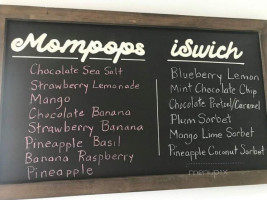 Mompops
Chocolate Sea Salt
Strawberry Lemonade
Mango
Chocolate Banana
Strawberry Banana
Pineapple Basil
Banana Raspberry
Pineapple
iSwich
Blueberry Lemon
Mint Chocolate Chip
Chocolate Pretzel/Caramel
Plum Sorbet
Mango Lime Sorbet
Pineapple Coconut Sorbet